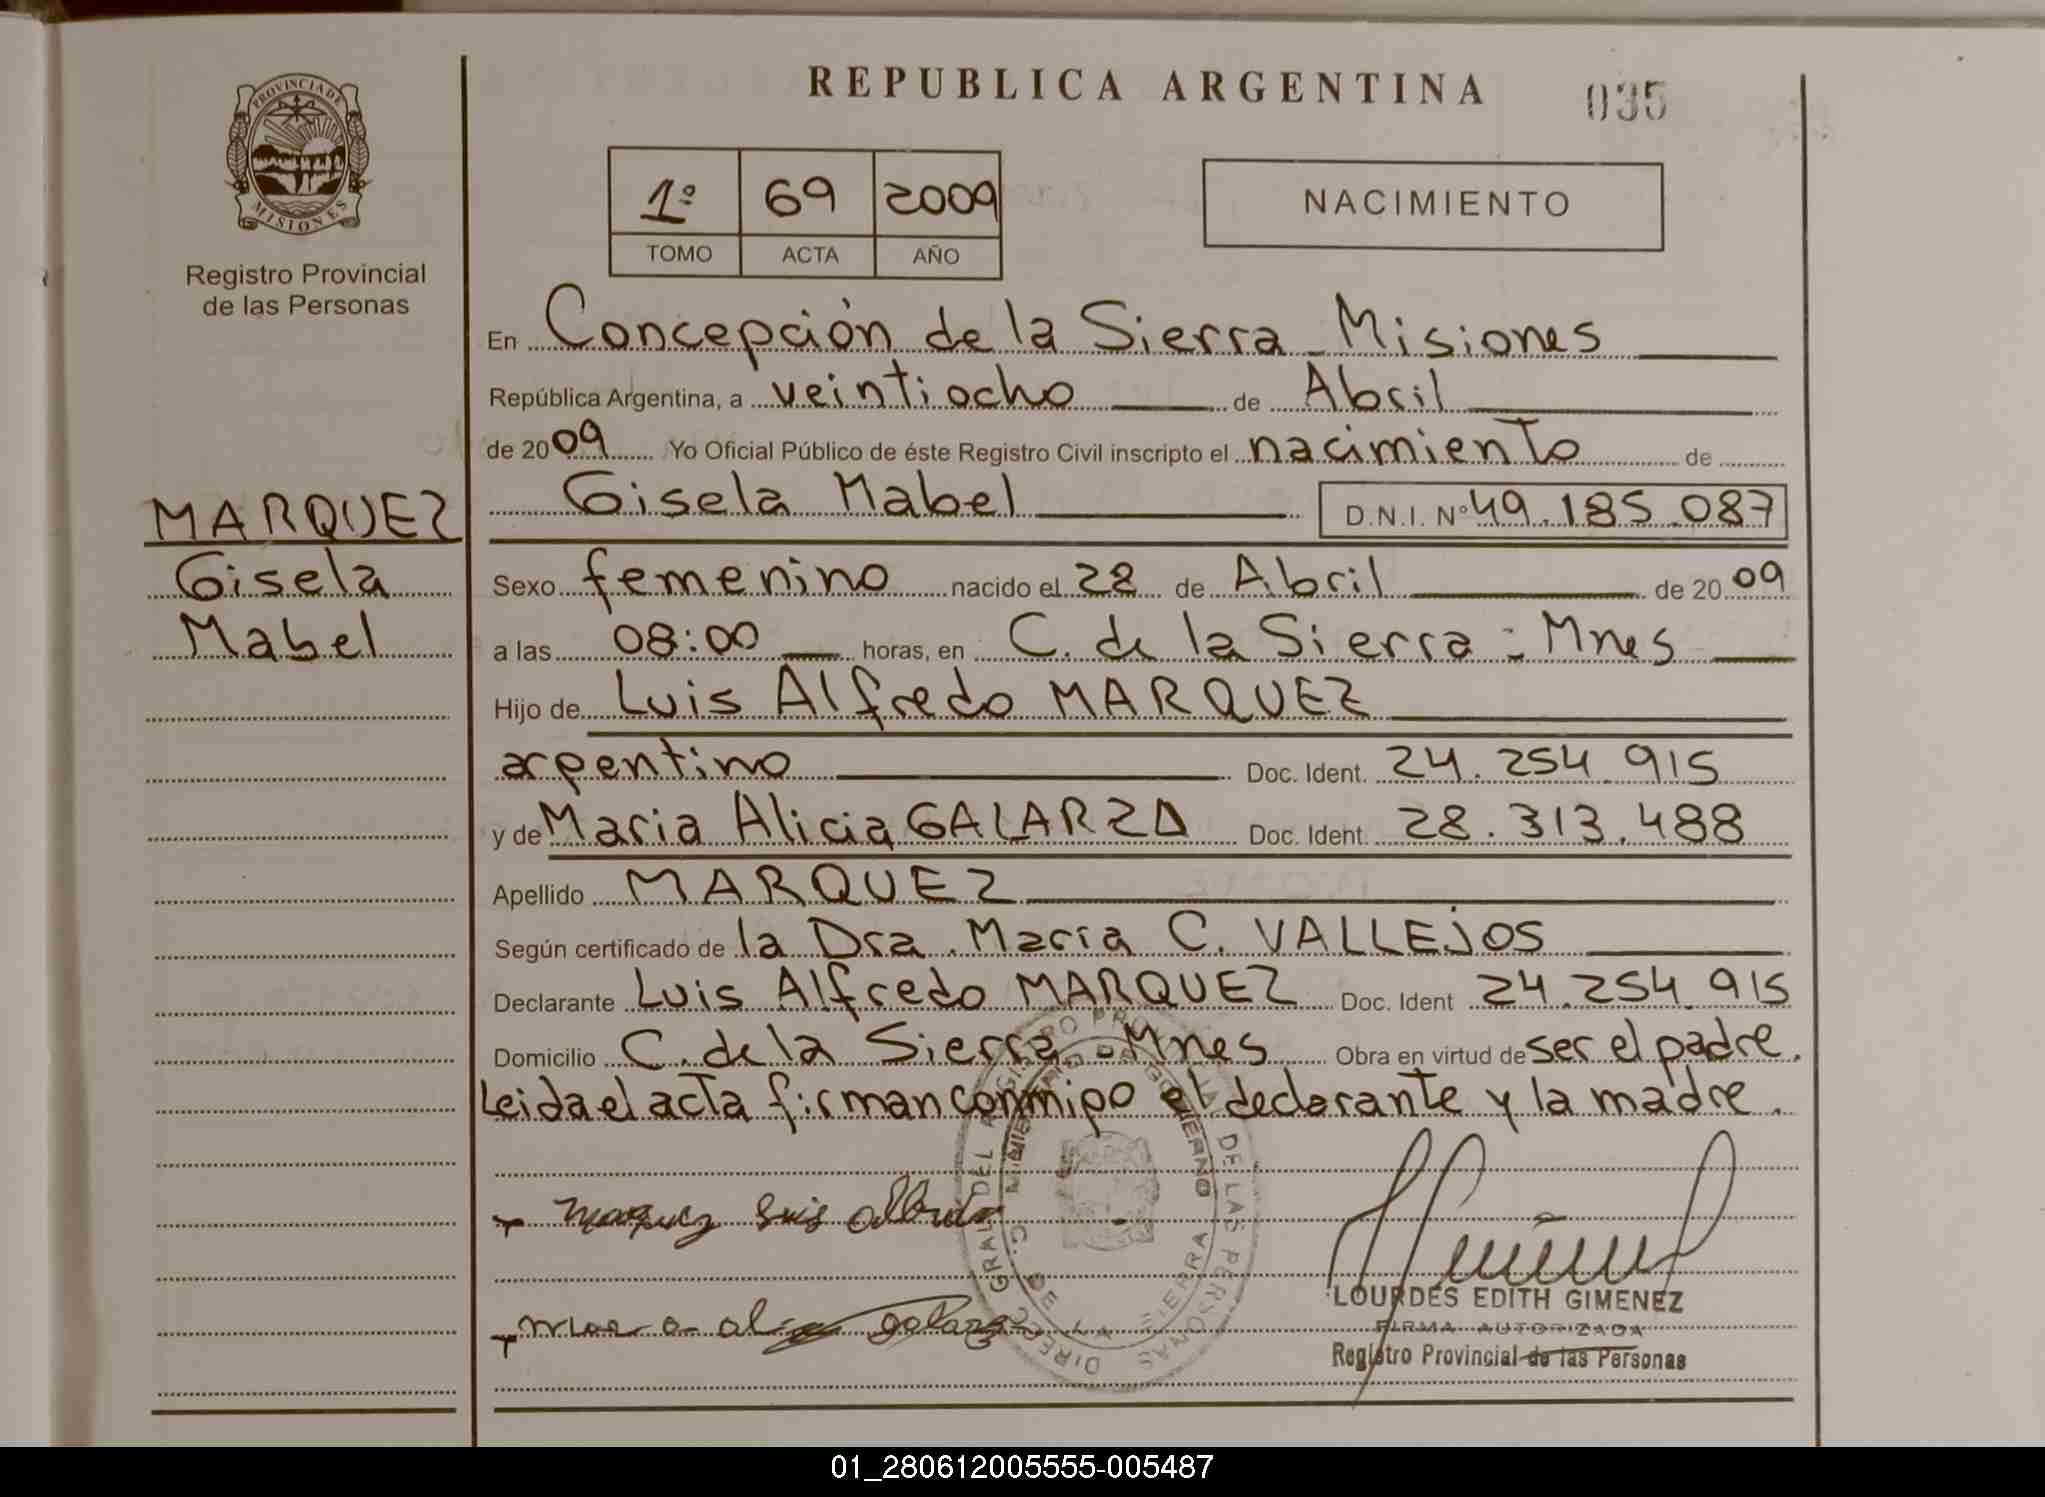 REPUBLICA ARGENTINA
035
PROVINCIA DE
MISIONES
Registro Provincial
de las Personas
1º 69 2009
TOMO ACTA AÑO
NACIMIENTO
En Concepción de la Sierra - Misiones
República Argentina, a veintiocho de Abril
de 2009 Yo Oficial Público de éste Registro Civil inscripto el nacimiento de
Gisela Mabel D.N.I. Nº 49.185.087
MARQUEZ
Gisela
Mabel
Sexo femenino nacido el 28 de Abril de 2009
a las 08:00 horas, en C. de la Sierra - Mnes
Hijo de Luis Alfredo MARQUEZ
argentino Doc. Ident. 24.254.915
y de Maria Alicia GALARZA Doc. Ident. 28.313.488
Apellido MARQUEZ
Según certificado de la Dra. María C. VALLEJOS
Declarante Luis Alfredo MARQUEZ Doc. Ident 24.254.915
Domicilio C. de la Sierra - Mnes Obra en virtud de ser el padre.
Leida el acta firman conmigo el declarante y la madre.
DIRECC. GRAL DEL REGISTRO PROVINCIAL DE LAS PERSONAS
MINISTERIO DE GOBIERNO
C. DE LA SIERRA
Marquez Luis Alfredo
maria alicia galarza
LOURDES EDITH GIMENEZ
FIRMA AUTORIZADA
Registro Provincial de las Personas
01_280612005555-005487